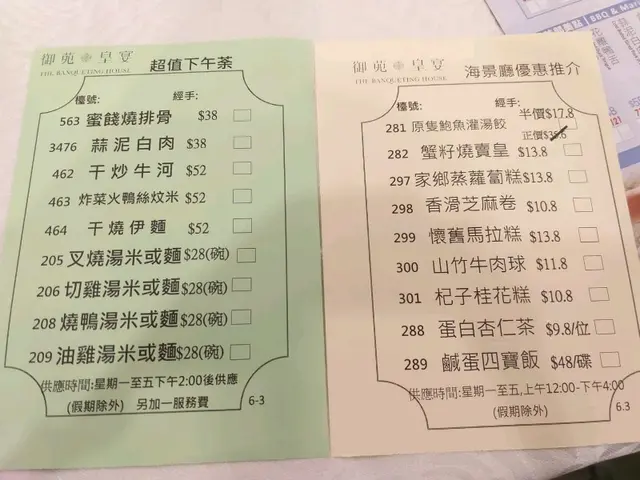 御苑皇宴
THE BANQUETING HOUSE
超值下午茶
檯號: 經手:
563 蜜餞燒排骨 $38
3476 蒜泥白肉 $38
462 干炒牛河 $52
463 炸菜火鴨絲炆米 $52
464 干燒伊麵 $52
205 叉燒湯米或麵 $28(碗)
206 切雞湯米或麵 $28(碗)
208 燒鴨湯米或麵 $28(碗)
209 油雞湯米或麵 $28(碗)
供應時間:星期一至五下午2:00後供應
(假期除外) 另加一服務費
6-3
御苑皇宴
THE BANQUETING HOUSE
海景廳優惠推介
檯號: 經手:
半價$17.8
281 原隻鮑魚灌湯餃
正價$35.6
282 蟹籽燒賣皇 $13.8
297 家鄉蒸蘿蔔糕 $13.8
298 香滑芝麻卷 $10.8
299 懷舊馬拉糕 $13.8
300 山竹牛肉球 $11.8
301 杞子桂花糕 $10.8
288 蛋白杏仁茶 $9.8/位
289 鹹蛋四寶飯 $48/碟
供應時間:星期一至五,上午12:00-下午4:00
(假期除外)
6.3
BBQ & Ma